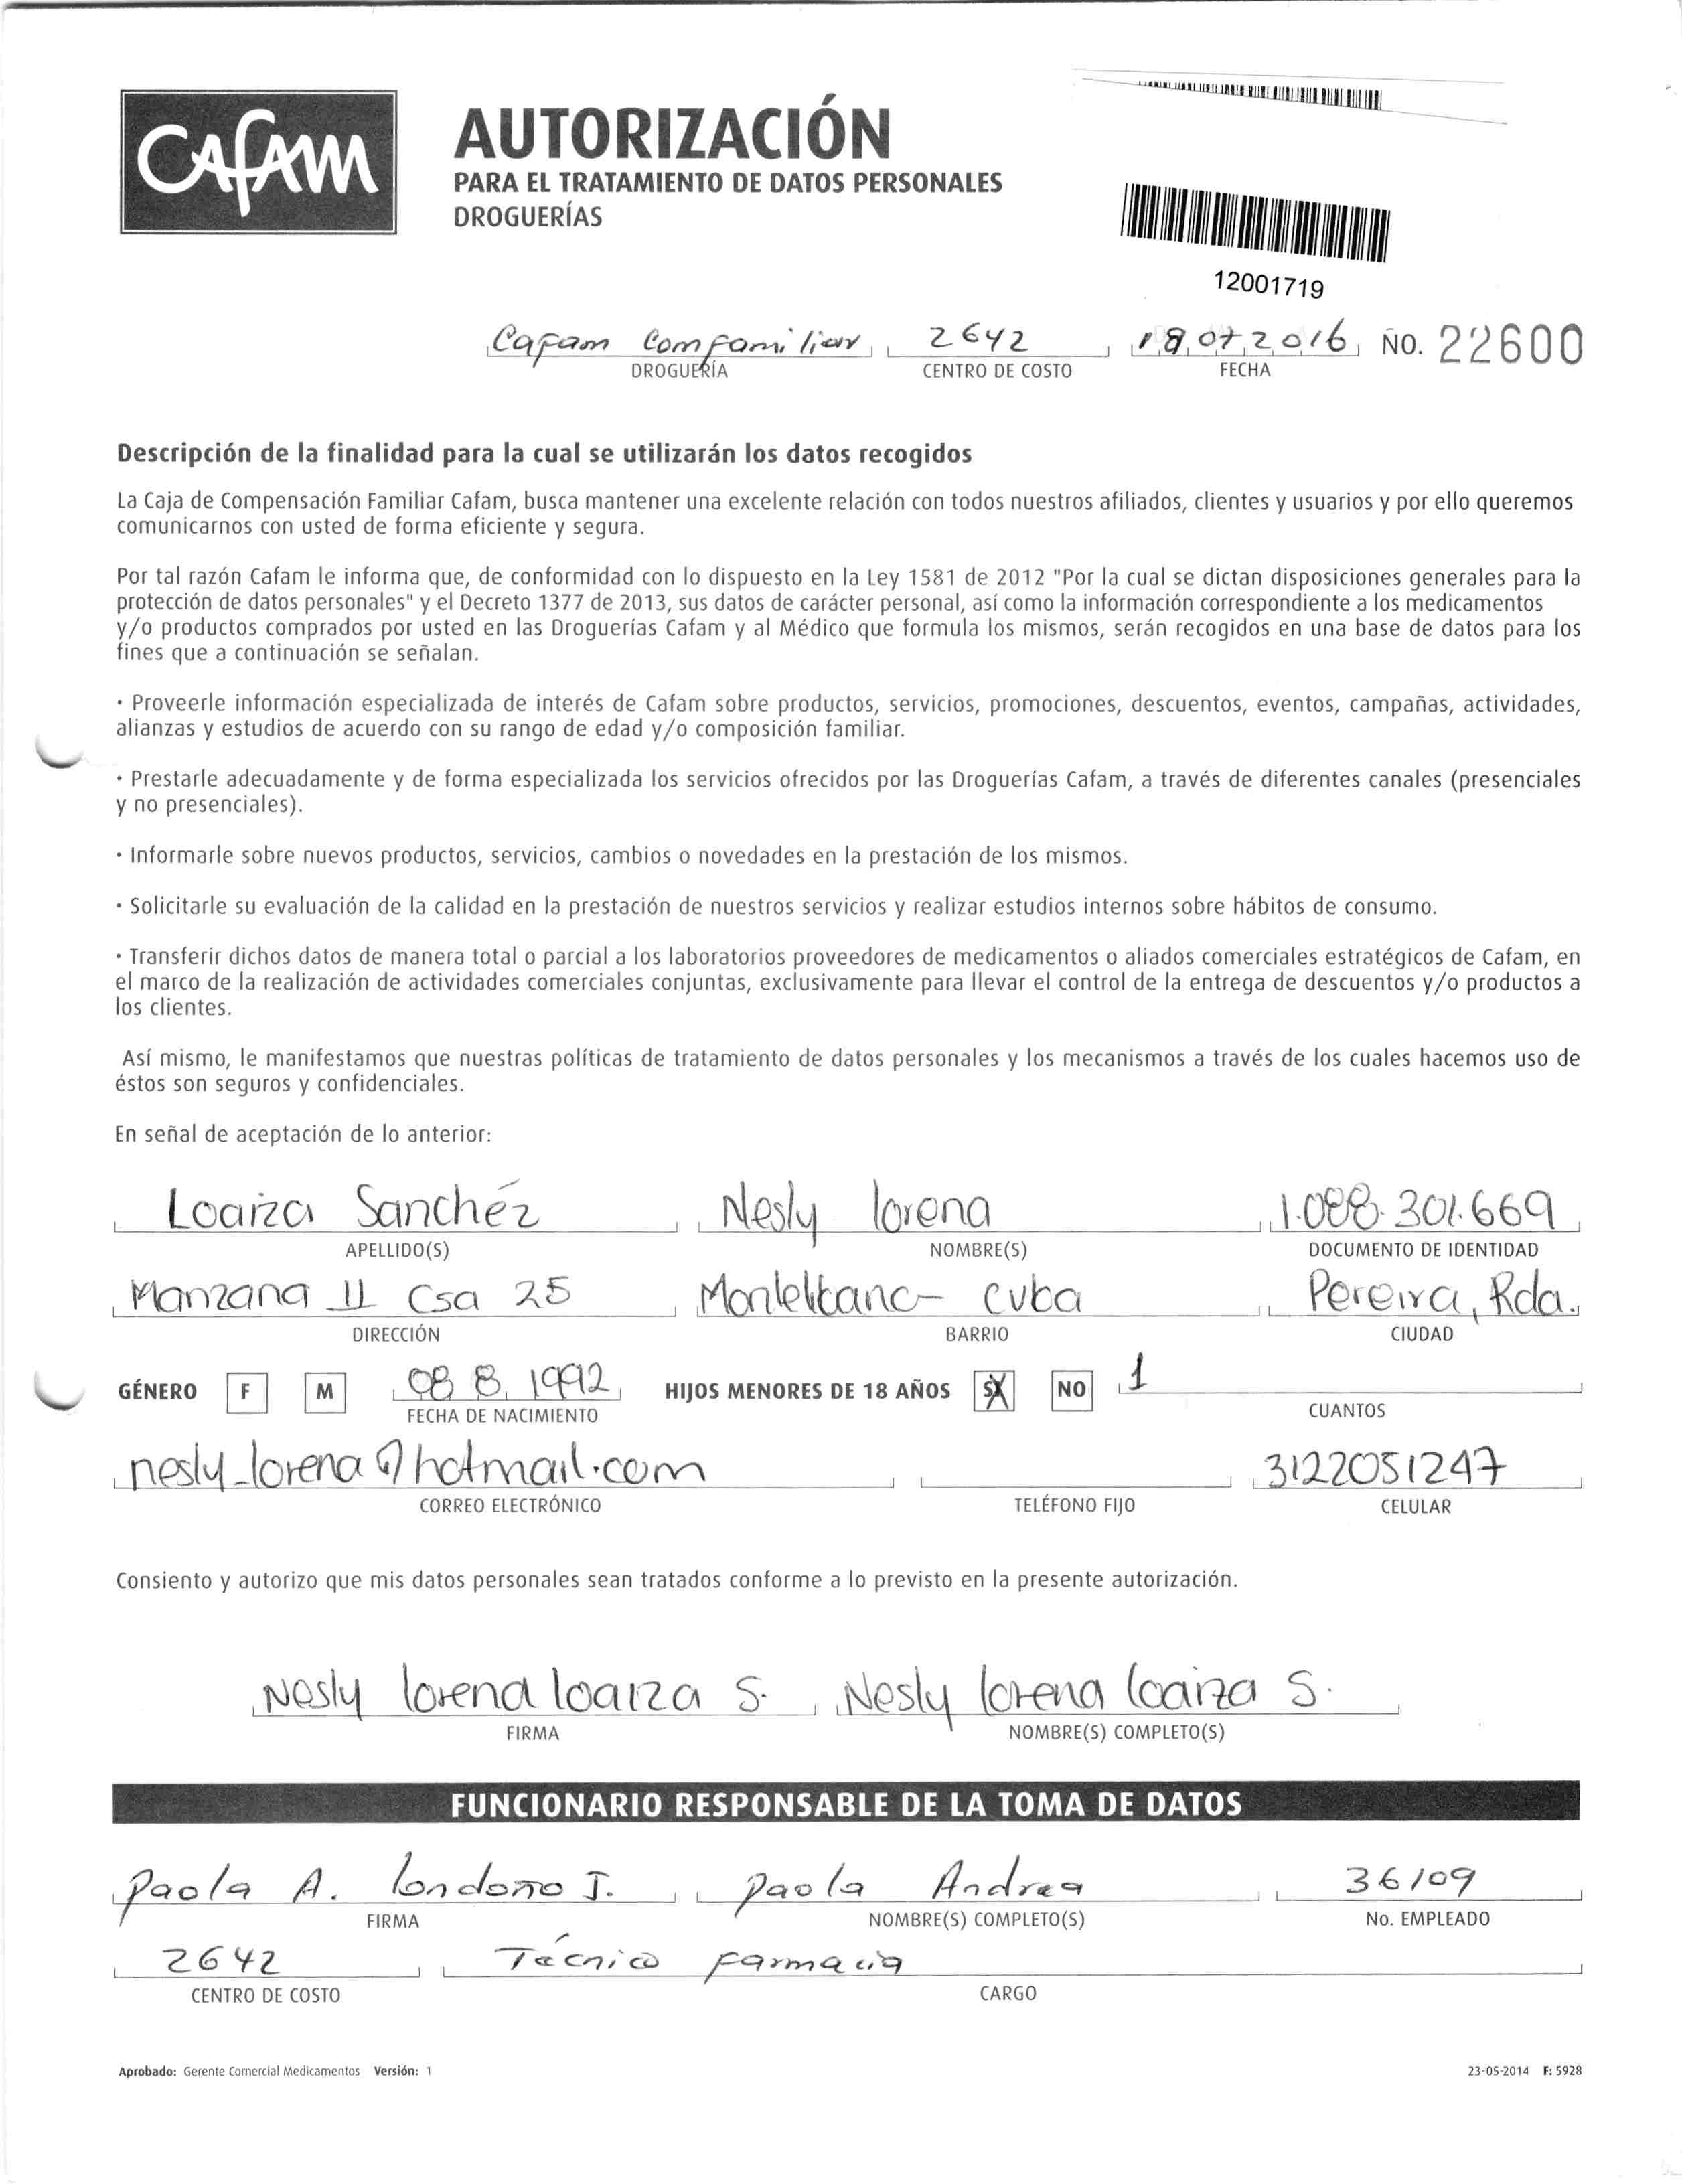 CAFAM
AUTORIZACIÓN
PARA EL TRATAMIENTO DE DATOS PERSONALES
DROGUERÍAS
12001719
Cafam Comfamiliar 2642 18 07 2016 NO. 22600
DROGUERÍA CENTRO DE COSTO FECHA
Descripción de la finalidad para la cual se utilizarán los datos recogidos
La Caja de Compensación Familiar Cafam, busca mantener una excelente relación con todos nuestros afiliados, clientes y usuarios y por ello queremos
comunicarnos con usted de forma eficiente y segura.
Por tal razón Cafam le informa que, de conformidad con lo dispuesto en la Ley 1581 de 2012 "Por la cual se dictan disposiciones generales para la
protección de datos personales" y el Decreto 1377 de 2013, sus datos de carácter personal, así como la información correspondiente a los medicamentos
y/o productos comprados por usted en las Droguerías Cafam y al Médico que formula los mismos, serán recogidos en una base de datos para los
fines que a continuación se señalan.
· Proveerle información especializada de interés de Cafam sobre productos, servicios, promociones, descuentos, eventos, campañas, actividades,
alianzas y estudios de acuerdo con su rango de edad y/o composición familiar.
· Prestarle adecuadamente y de forma especializada los servicios ofrecidos por las Droguerías Cafam, a través de diferentes canales (presenciales
y no presenciales).
· Informarle sobre nuevos productos, servicios, cambios o novedades en la prestación de los mismos.
· Solicitarle su evaluación de la calidad en la prestación de nuestros servicios y realizar estudios internos sobre hábitos de consumo.
· Transferir dichos datos de manera total o parcial a los laboratorios proveedores de medicamentos o aliados comerciales estratégicos de Cafam, en
el marco de la realización de actividades comerciales conjuntas, exclusivamente para llevar el control de la entrega de descuentos y/o productos a
los clientes.
Así mismo, le manifestamos que nuestras políticas de tratamiento de datos personales y los mecanismos a través de los cuales hacemos uso de
éstos son seguros y confidenciales.
En señal de aceptación de lo anterior:
Loaiza Sanchéz Nesly lorena 1.088.301.669
APELLIDO(S) NOMBRE(S) DOCUMENTO DE IDENTIDAD
Manzana 11 Csa 25 Montelibano - Cuba Pereira, Rda.
DIRECCIÓN BARRIO CIUDAD
GÉNERO F M 08 8 1992 HIJOS MENORES DE 18 AÑOS SI NO 1
FECHA DE NACIMIENTO CUANTOS
nesly_lorena@hotmail.com 3122051247
CORREO ELECTRÓNICO TELÉFONO FIJO CELULAR
Consiento y autorizo que mis datos personales sean tratados conforme a lo previsto en la presente autorización.
Nesly lorena loaiza S. Nesly lorena loaiza S.
FIRMA NOMBRE(S) COMPLETO(S)
FUNCIONARIO RESPONSABLE DE LA TOMA DE DATOS
Paola A. londoño J. Paola Andrea 36109
FIRMA NOMBRE(S) COMPLETO(S) No. EMPLEADO
2642 Técnico farmacia
CENTRO DE COSTO CARGO
Aprobado: Gerente Comercial Medicamentos Versión: 1 23-05-2014 F: 5928